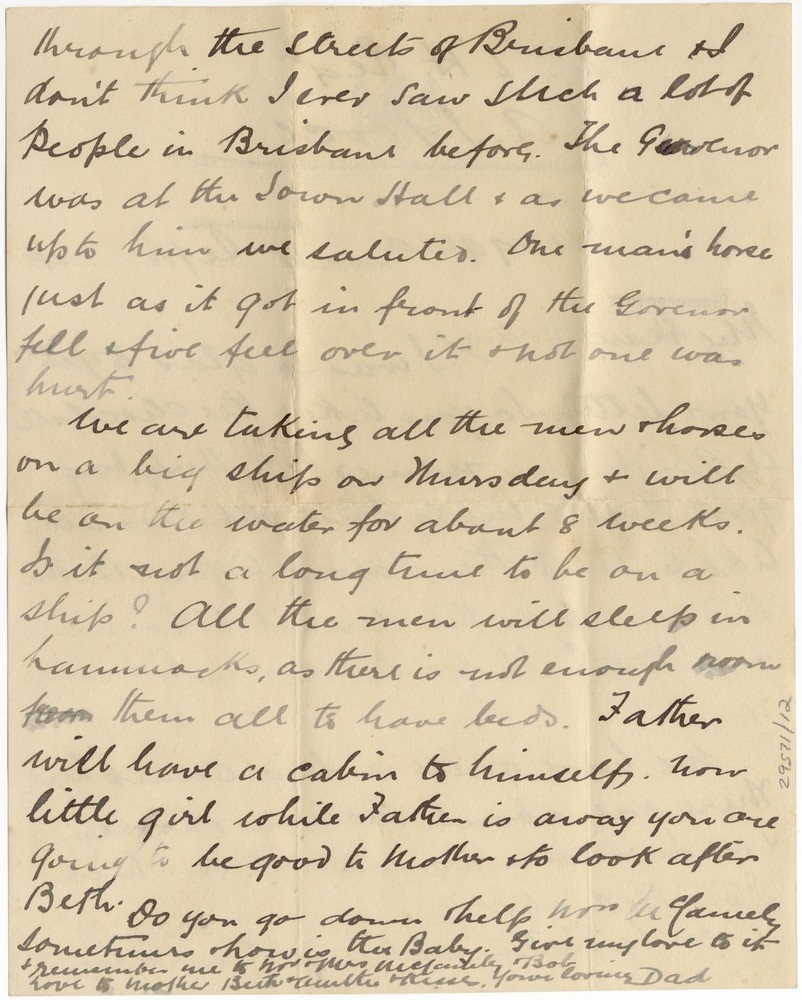 through the streets of Brisbane & I
don't think I ever saw such a lot of
People in Brisbane before. The Govenor
was at the Town Hall & as we came
up to him we saluted. One man's horse
just as it got in front of the Govenor
fell & five feel over it & not one was
hurt.
We are taking all the men & horses
on a big ship on Thursday & will
be on the water for about 8 weeks.
Is it not a long time to be on a
ship? All the men will sleep in
hammocks, as there is not enough room
them all to have beds. Father
will have a cabin to himself. Now
little girl while Father is away you are
going to be good to Mother & to look after
Beth.
Do you go down & help
sometimes & how is the Baby. Give my love to it
& remember me to & Mrs & Bob
Love to Mother Beth & Auntie & Your loving Dad
29571/12